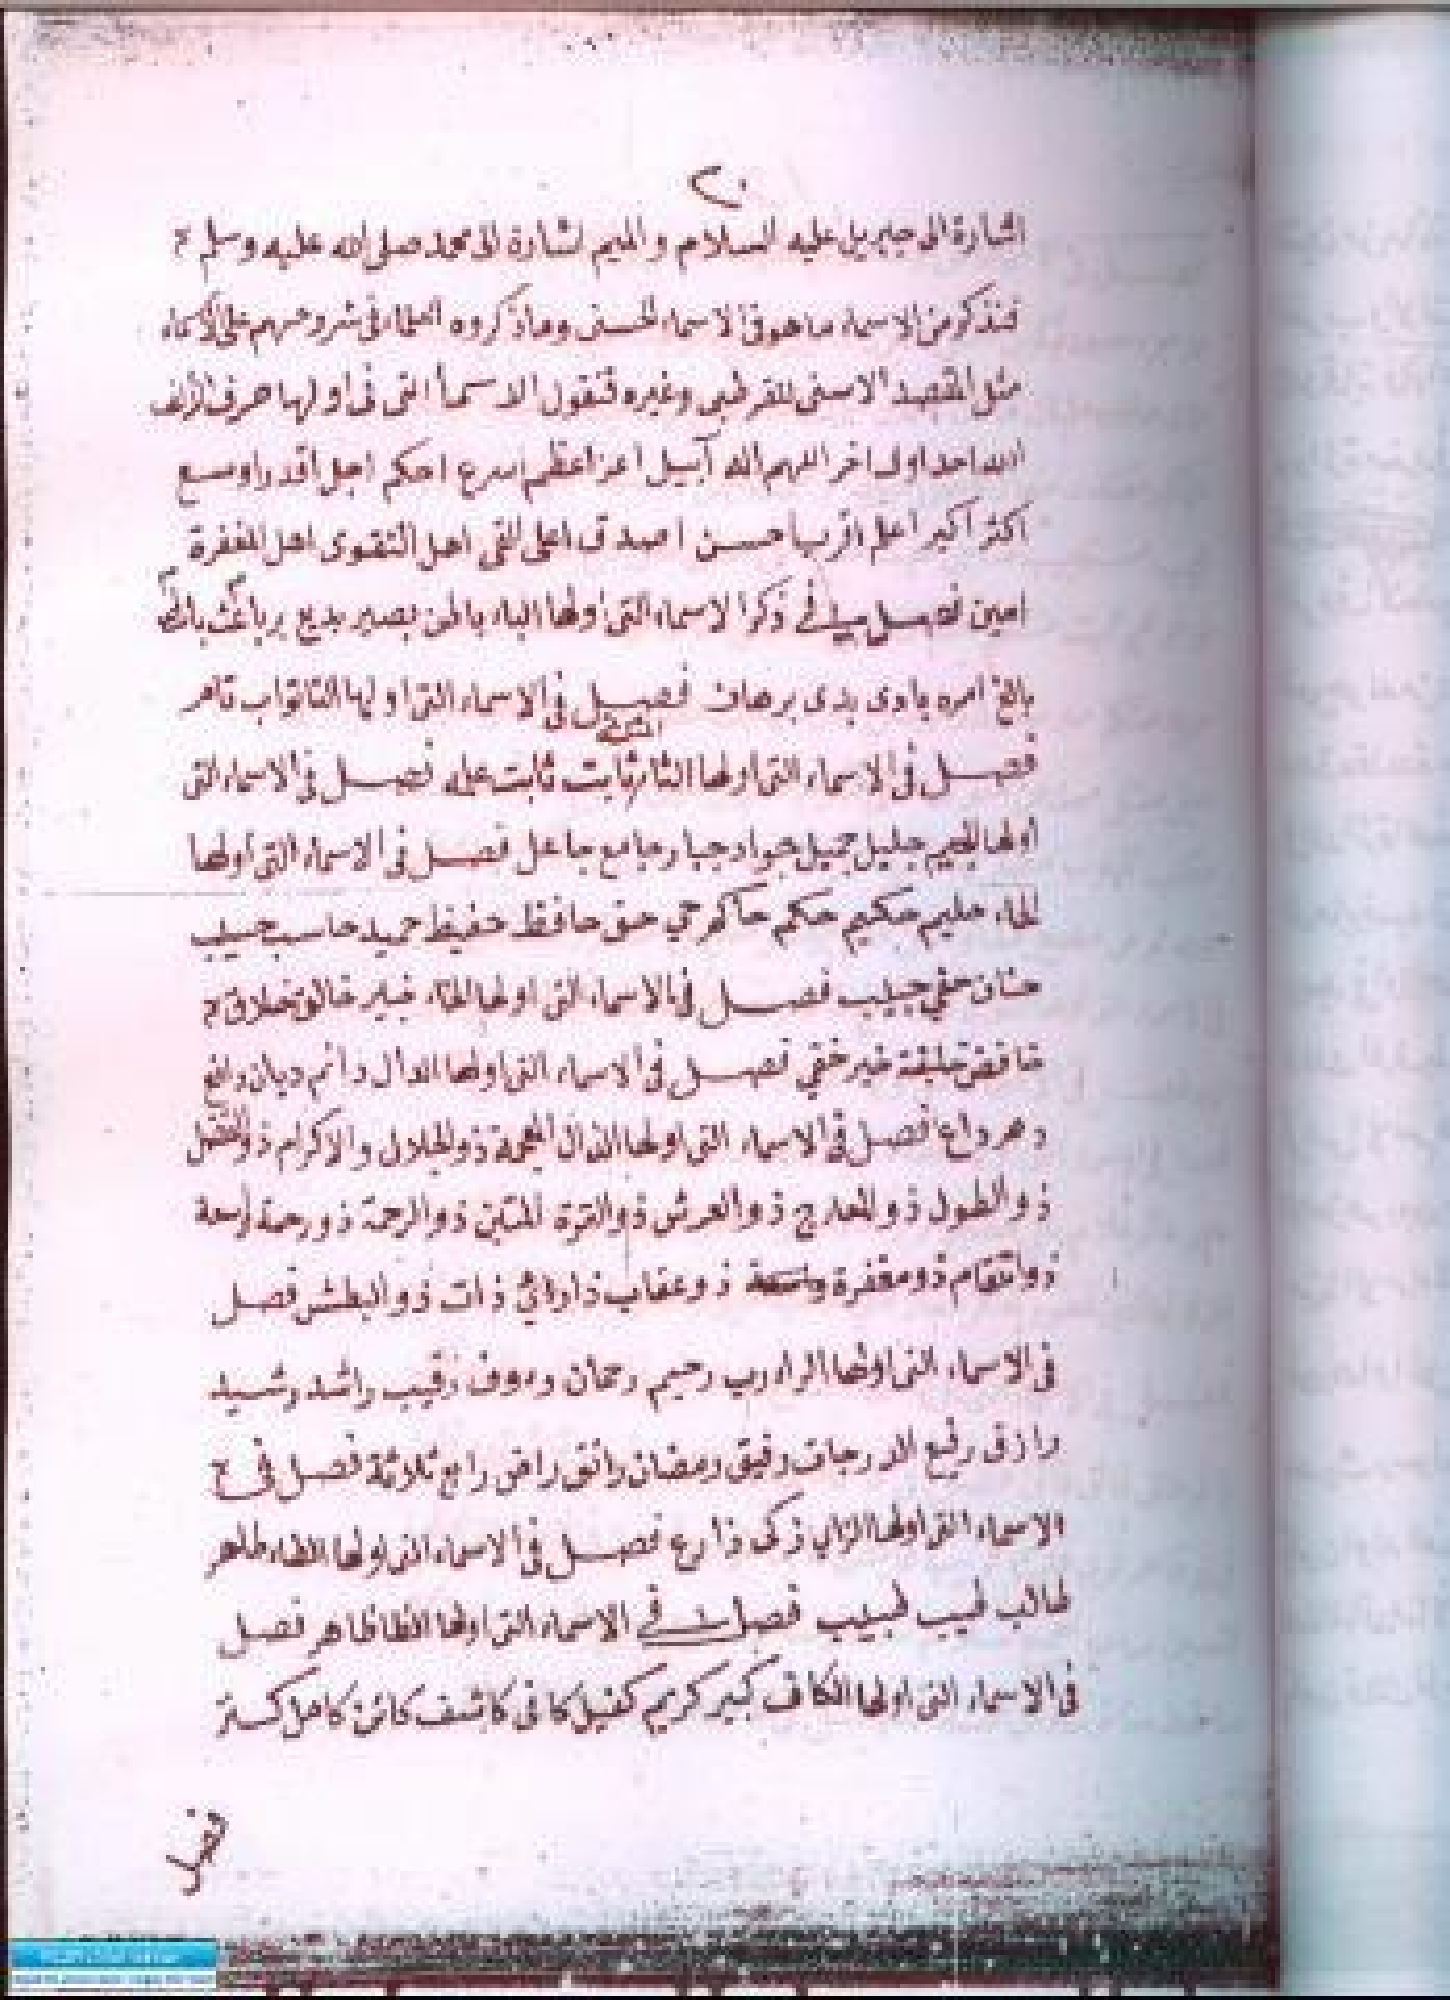 ٢٠
اشارة الى جبريل عليه السلام والميم اشارة الى محمد صلى الله عليه وسلم
فنذكر من الاسماء ما هو في الاسماء الحسنى وما ذكروه العلماء في شروحهم على الاسماء
مثل المقصد الاسنى للقرطبي وغيره فنقول الاسمأ التى فى اولها حرف الألف
الله احد اول اخر اللهم اله اعز اعظم اسرع احكم اجل اقدر اوسع
اكثر اكبر اعلم اقرب احسن اصدق اعلى اهل التقوى اهل المغفرة
امين فصل في ذكر الاسماء التى اولها الباء باطن بصير بديع بر باعث
بالغ امره بادى بدى برهان فصل فى الاسماء التى اولها التا تواب
فصل فى الاسماء التى اولها الثا ثابت ثابت علمه فصل فى الاسماء التى
اولها الجيم جليل جميل جواد جبار جامع جاعل فصل فى الاسماء التى اولها
الحاء حليم حكيم حكم حاكم حي حق حافظ حفيظ حميد حاسب حسيب
حنان حفي حبيب فصل فى الاسماء التى اولها الخاء خبير خالق خلاق
خافض خليفة خير خفي فصل فى الاسماء التى اولها الدال دائم ديان دافع
دهر داع فصل فى الاسماء التى اولها الذال المعجمة ذو الجلال والاكرام ذو الفضل
ذو الطول ذو المعارج ذو العرش ذو القوة المتين ذو الرحمة ذو رحمة واسعة
ذو انتقام ذو مغفرة ذو عقاب ذارئ ذات ذو البطش فصل
فى الاسماء التى اولها الراء رب رحيم رحمان رءوف رقيب راشد رشيد
رازق رفيع الدرجات رفيق رمضان راتق راض رابع ثلاثة فصل فى
الاسماء التى اولها الزاى زكى زارع فصل فى الاسماء التى اولها الطاء طاهر
طالب طيب طبيب فصل فى الاسماء التى اولها الظا ظاهر فصل
فى الاسماء التى اولها الكاف كبير كريم كفيل كافى كاشف كائن كامل
فصل